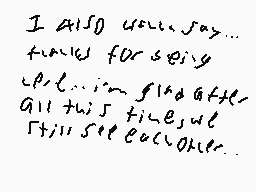 I also would say...
thanks for being
here... i'm glad after
all this time, we
still see each other...